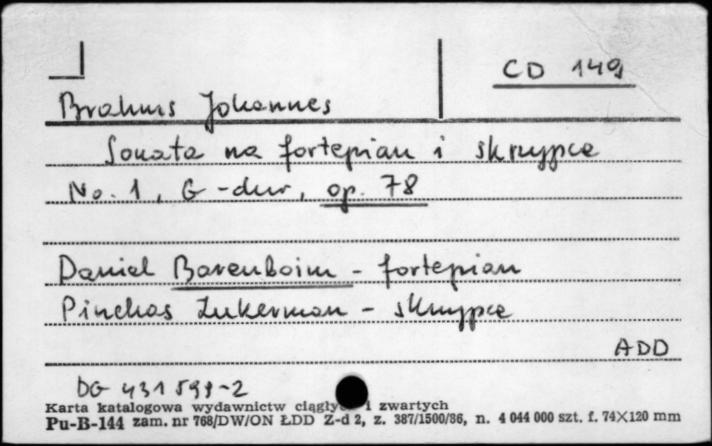 CD 149
Brahms Johannes
Sonata na fortepian i skrzypce
No. 1, G-dur, op. 78
Daniel Barenboim - fortepian
Pinchas Zukerman - skrzypce
ADD
DG 431 599-2
Karta katalogowa wydawnictw ciągłych i zwartych
Pu-B-144 zam. nr 768/DW/ON ŁDD Z-d 2, z. 387/1500/86, n. 4 044 000 szt. f. 74×120 mm